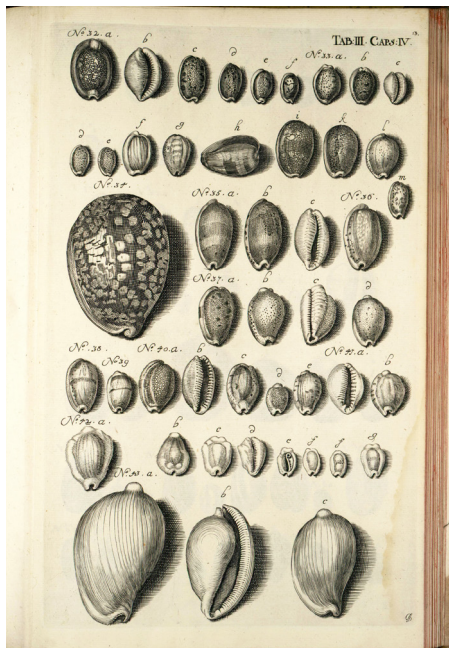 TAB: III. CAPS: IV.
N.º 32. a. b c d e f N.º 33. a. b c
d e f g h i k l
m
N.º 34. N.º 35. a. b c N.º 36.
N.º 37. a. b c d
N.º 38. N.º 39 N.º 40. a. b c d e N.º 41. a. b
N.º 42. a. b c d e f f g
N.º 43. a. b c